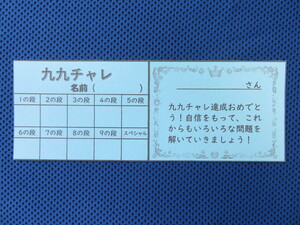 九九チャレ
名前（　　　　　）
1の段 2の段 3の段 4の段 5の段
6の段 7の段 8の段 9の段 スペシャル
さん
九九チャレ達成おめでと
う！自信をもって、これ
からもいろいろな問題を
解いていきましょう！